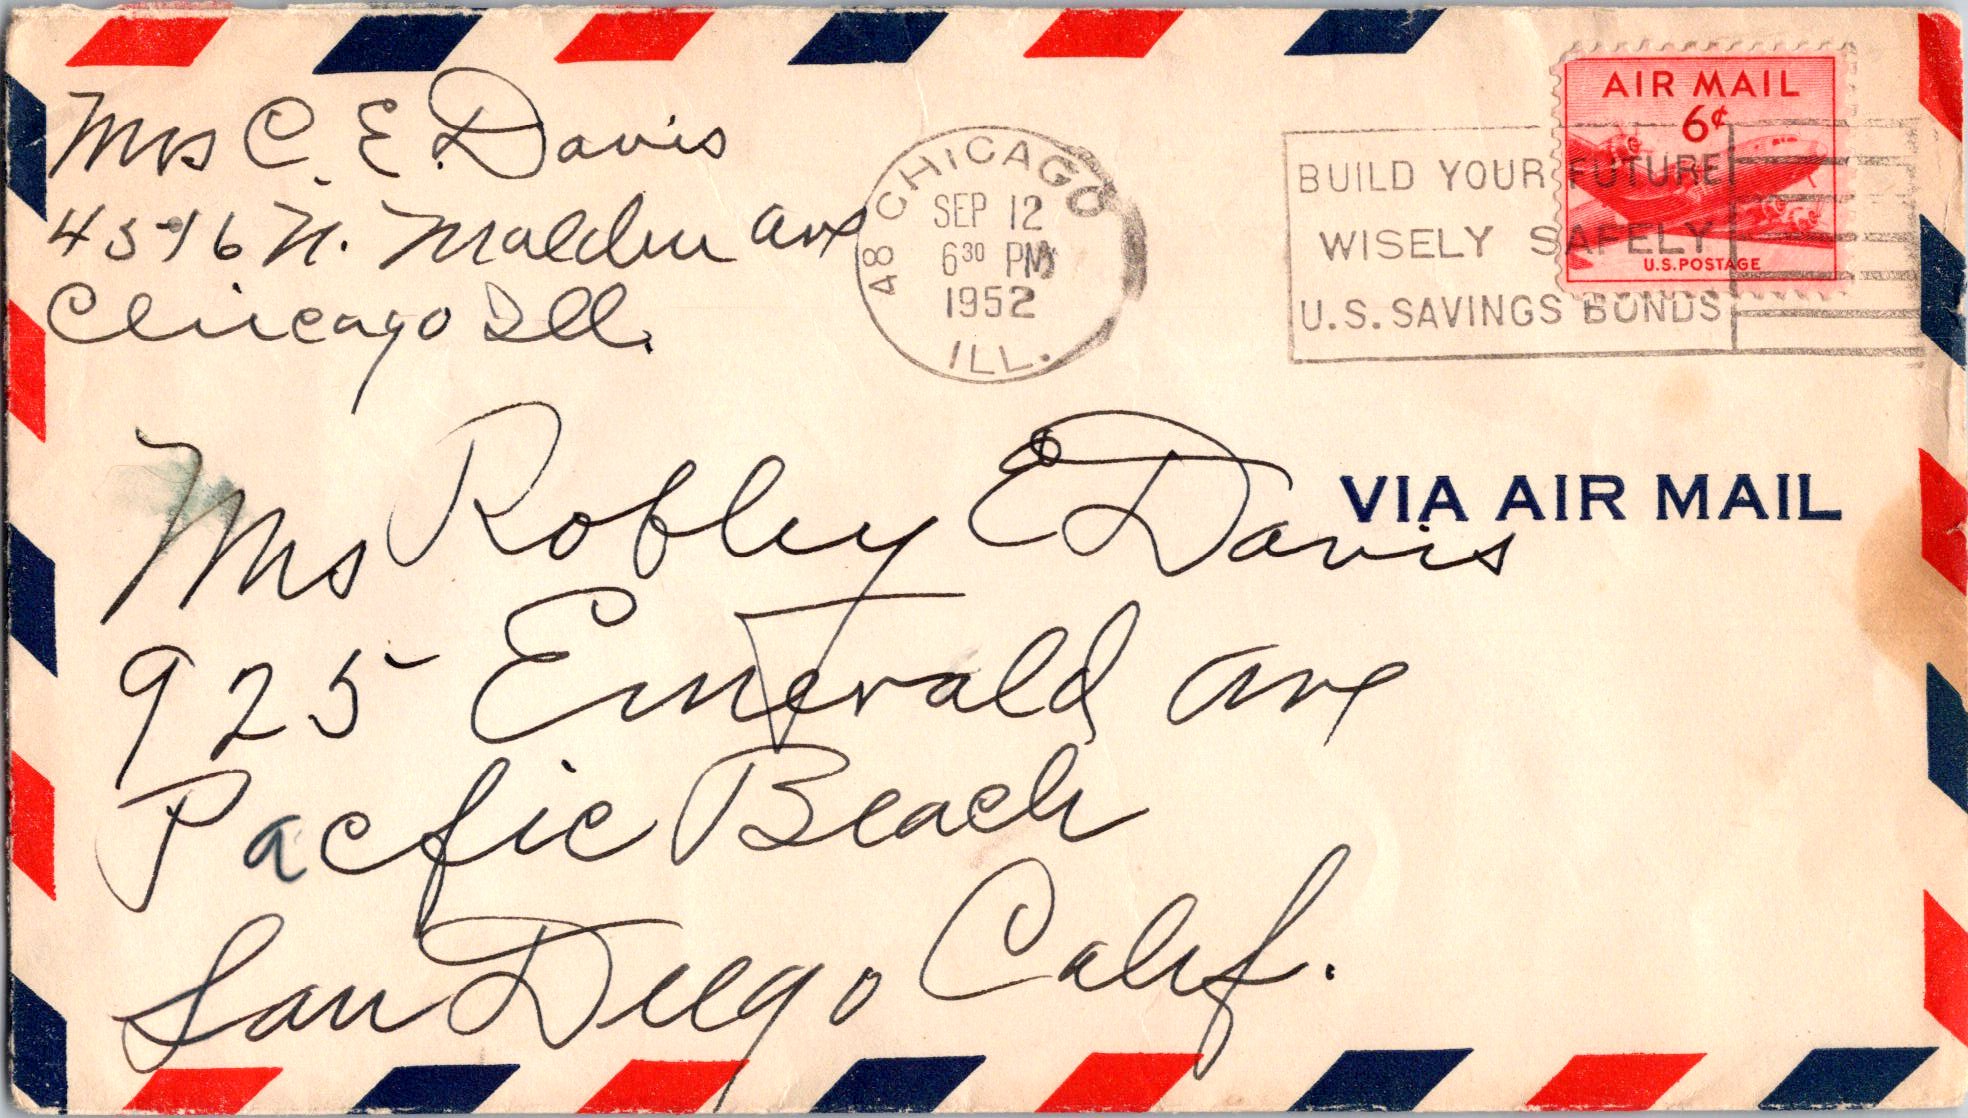 Mrs C. E. Davis
4516 N. Malden ave
Chicago Ill.
48 CHICAGO ILL.
SEP 12
6 30 PM
1952
BUILD YOUR FUTURE
WISELY SAFELY
U.S. SAVINGS BONDS
AIR MAIL
6¢
U.S. POSTAGE
VIA AIR MAIL
Mrs Robley E Davis
925 Emerald ave
Pacfic Beach
San Diego Calif.